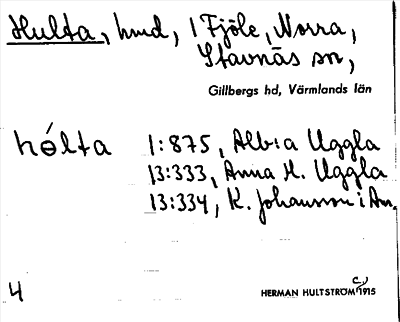 Hulta, hmd, 1 Fjöle, Norra,
Stavnäs sn,
Gillbergs hd, Värmlands län
hólta 1:875, Alb:a Uggla
13:333, Anna H. Uggla
13:334, K. Johansson i An.
4 HERMAN HULTSTRÖM c,) 1915